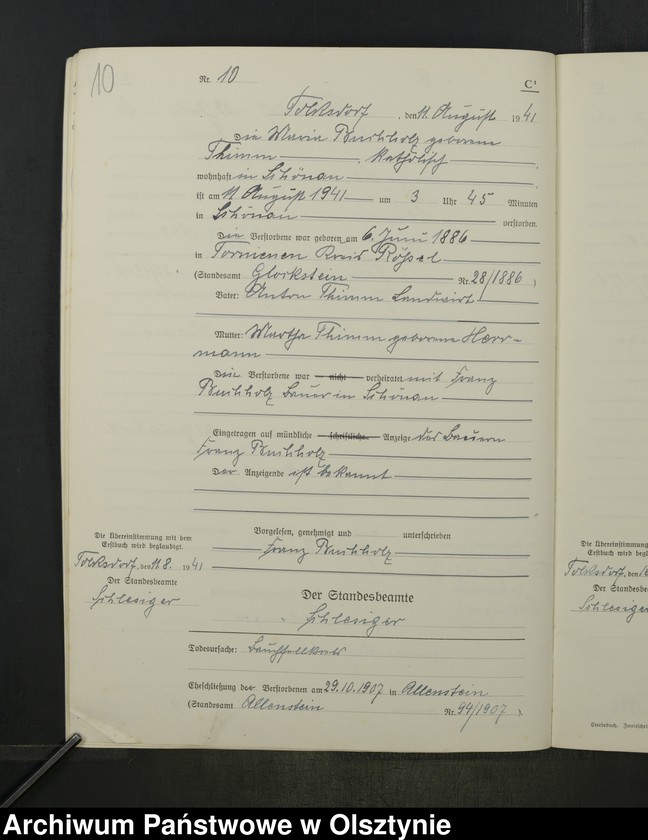 10
Nr. 10
C¹
Tolksdorf, den 11. August 1941
Die Maria Buchholz geborene
Thimm, katholisch
wohnhaft in Schönau
ist am 11. August 1941 um 3 Uhr 45 Minuten
in Schönau verstorben.
Die Verstorbene war geboren am 6. Juni 1886
in Tornienen Kreis Rößel
(Standesamt Glockstein Nr. 28/1886)
Vater: Anton Thimm Landwirt
Mutter: Martha Thimm geborene Herr-
mann
Die Verstorbene war nicht verheiratet mit Franz
Buchholz Bauer in Schönau
Eingetragen auf mündliche schriftliche Anzeige des Bauern
Franz Buchholz
Der Anzeigende ist bekannt
Vorgelesen, genehmigt und unterschrieben
Franz Buchholz
Die Übereinstimmung mit dem
Erstbuch wird beglaubigt.
Tolksdorf, den 11.8. 1941
Der Standesbeamte
Schlesiger
Der Standesbeamte
Schlesiger
Todesursache: Bauchfellkrebs
Eheschließung der Verstorbenen am 29.10.1907 in Allenstein
(Standesamt Allenstein Nr. 94/1907)
Die Übereinstimmung
Erstbuch wird
Tolksdorf, den
Der Standesbe
Schlesiger
Archiwum Państwowe w Olsztynie